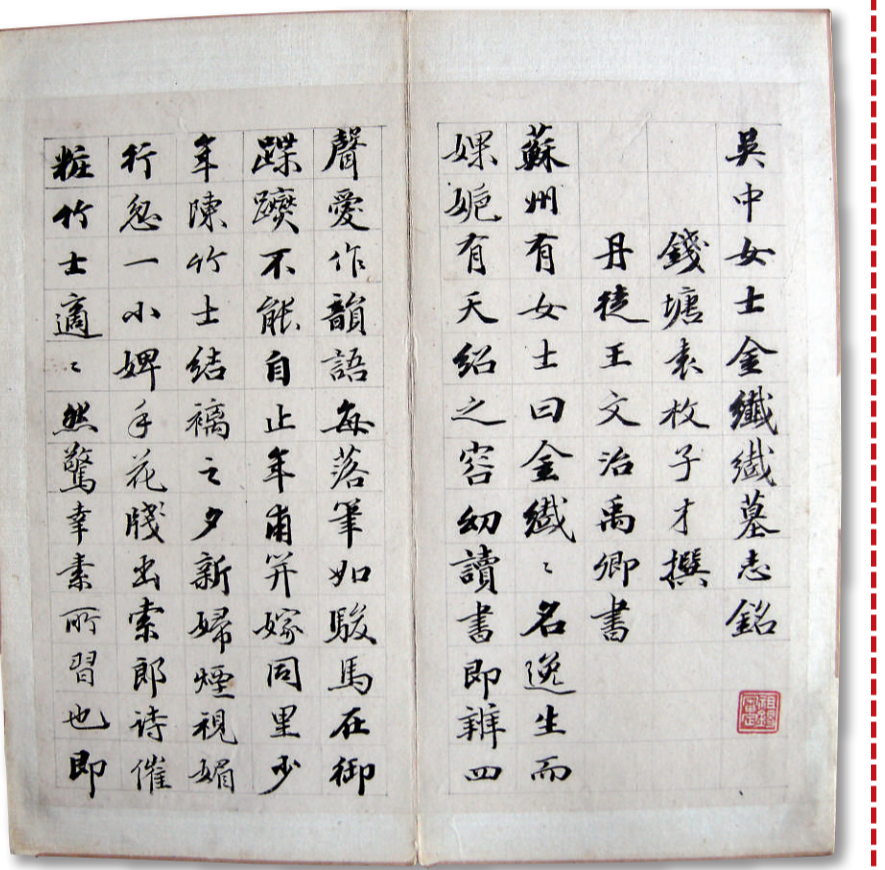 吳中女士金纖纖墓志銘
錢塘袁枚子才撰
丹徒王文治禹卿書
蘇州有女士曰金纖〻名逸生而
婐姽有天紹之容幼讀書即辨四
聲愛作韻語每落筆如駿馬在御
蹀躞不能自止年甫笄嫁同里少
年陳竹士結褵之夕新婦煙視媚
行忽一小婢手花牋出索郎詩催
粧竹士適〻然驚幸素所習也即